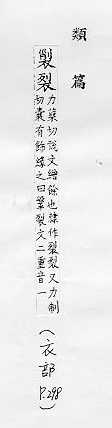 類篇
裂
力蘖切說文繒餘也隸作裂裂又力制
切囊有飾緣之曰鞶裂文二重音一
(衣部 P.298)